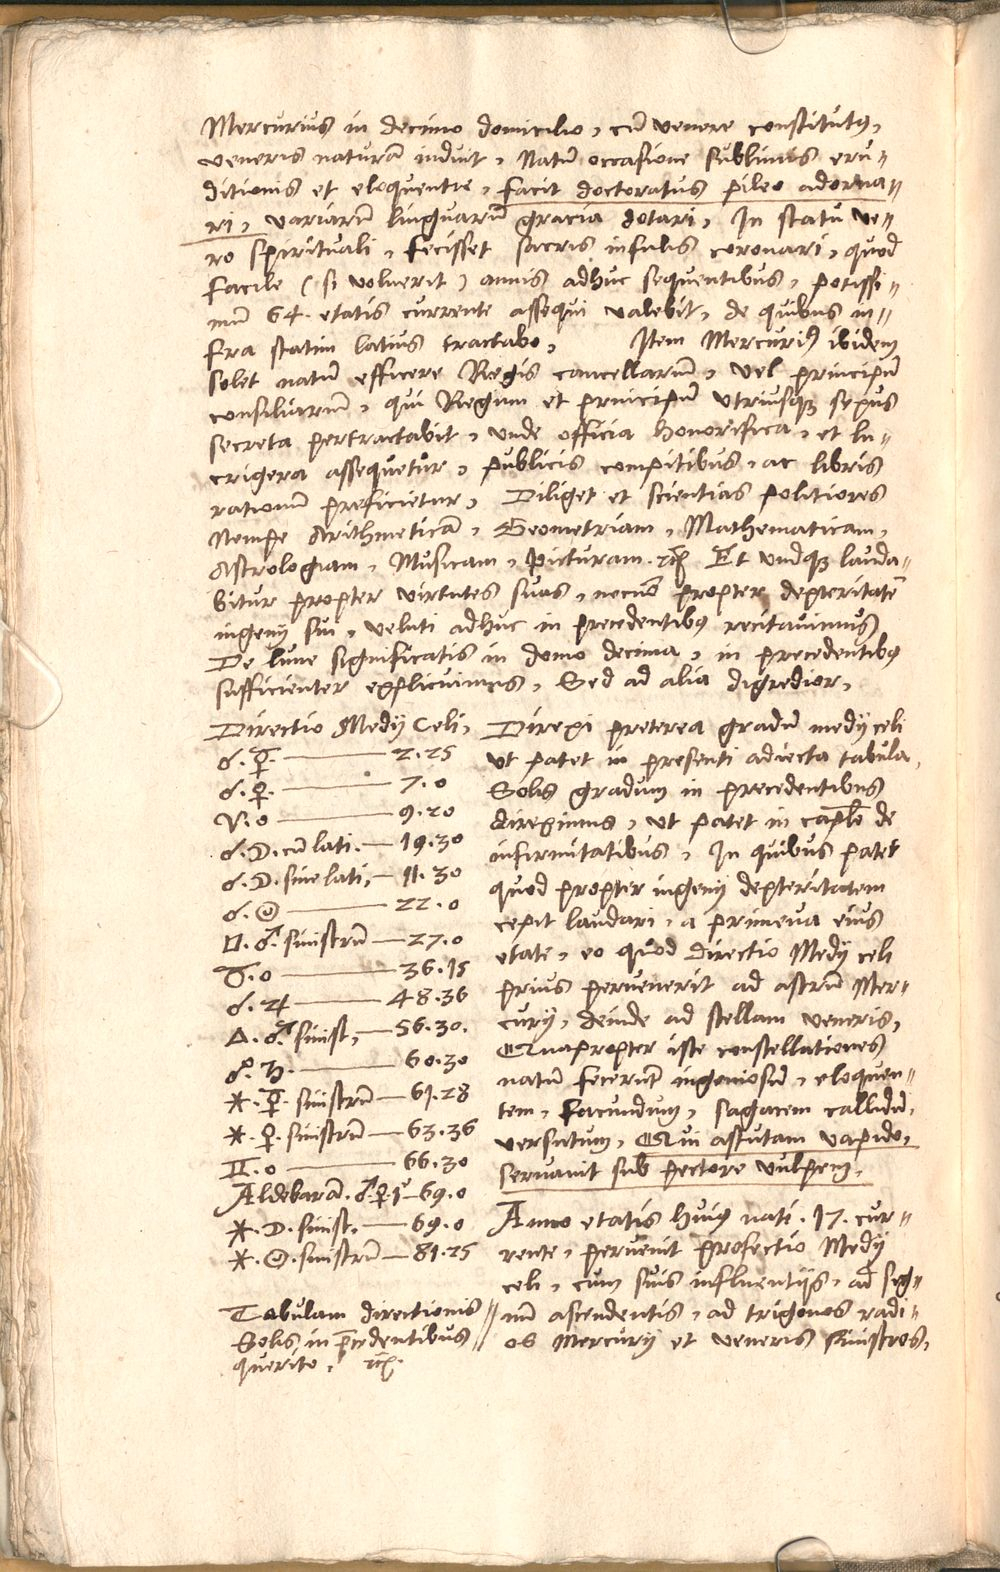 Mercurius in decimo domicilio, cũ venere constitutꝯ,
veneris naturā induit, Natũ occasione sublimis eru-
ditionis et eloquentie, facit doctoratus pileo adorna-
ri, variarũ linguarũ gracia dotari, In statu ve-
ro spirituali, fecisset sacris infulis coronari, quod
facile (si voluerit) annis adhuc sequentibus, potissi-
mũ 64. etatis currente assequi valebit, de quibus in-
fra statim latius tractabo, Item Mercuriꝯ ibidem
solet natũ efficere Regis cancellariũ, Vel principũ
consiliariũ, qui Regum et principũ utriusqꝫ sexus
secreta pertractabit, unde officia honorifica, et lu-
crigera assequetur, publicis compitibus, ac libris
rationũ præficietur, Diliget et scientias politiores
Nempe Arithmeticā, Geometriam, Mathematicam,
Astrologiam, Musicam, picturam. ꝛc̃ Et undiqꝫ lauda-
bitur propter virtutes suas, necnõ propter dexteritatẽ
ingenij sui, veluti adhuc in precedentibꝯ recitavimus
De lune significatis in domo decima, in precedentibꝯ
sufficienter explicuimus, Sed ad alia digredior,
Directio Medij Celi,
☌. ☿. — 2. 25
☌. ♀. — 7. 0
♈. 0 — 9. 20
☌. ☽. cũ lati. — 19. 30
☌. ☽. sine lati, — 11. 30
☌. ☉ — 22. 0
□. ♂. sinistrũ — 27. 0
♉. 0 — 36. 15
☌. ♃ — 48. 36
△. ♂. sinist, — 56. 30.
☍. ♄. — 60. 30
⚹. ☿. sinistrũ — 61. 28
⚹. ♀. sinistrũ — 63. 36
♊. 0 — 66. 30
Aldebarā. ♂. ☿ — 69. 0
⚹. ☽. sinist. — 69. 0
⚹. ☉. sinistrũ — 81. 25
Tabulam directionis
Solis, in p̄cedentibus
querito, ꝛc̃.
Direxi preterea gradũ medij celi
ut patet in presenti adiecta tabula,
Solis gradum in precedentibus
direximus, ut patet in capl̃o de
infirmitatibus, In quibus patet
quod propter ingenij dexteritatem
cepit laudari, a primeva eius
etate, eo quod directio Medij celi
prius pervenerit ad astrũ Mer-
curij, deinde ad stellam veneris,
Quapropter iste constellationes
natũ fecerũt ingeniosũ, eloquen-
tem, facundum, sagacem callidũ,
versutum, Qui astutam vapido,
servavit sub pectore vulpem,
Anno etatis huiꝯ nati. 17. cur-
rente, pervenit profectio Medij
celi, cum suis influentijs, ad sig-
nũ ascendentis, ad trigonos radi-
os Mercurij et veneris sinistros,